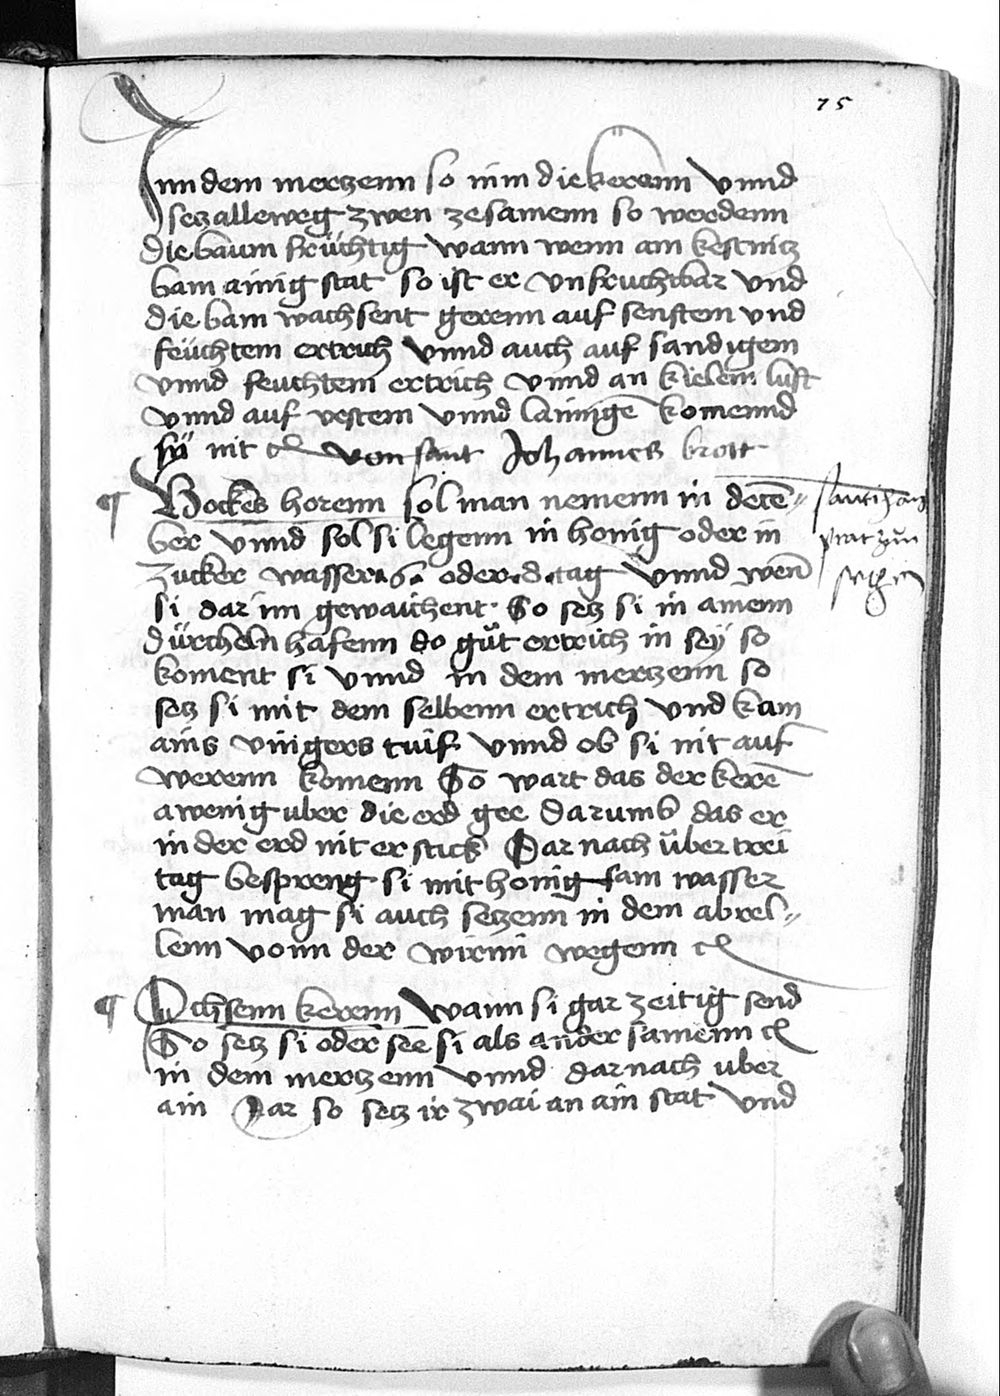 75
Inn dem mertzenn so nim die kerenn vnnd
setz alleweg zwen zesamenn so werdenn
die baum früchtig wann wenn am kestnitz
bam ainig stat so ist er vnfruchtbar vnd
die bam wachsent gerenn auf senftem vnd
feüchtem ertrich vnnd auch auf sandigem
vnnd feuchtem ertrich vnnd an kielem luft
vnnd auf vestem vnnd laimigē komennd
sÿ nit ⁊c von sant Johannes brott
¶ Bockes horenn sol man nemenn in decē-
ber vnnd sol si legenn in honig oder in
zucker wasser .6. oder .8. tag vnnd wenn̄
si dar inn gewaichent. So setz si in amenn
dürcheln hafenn do gůt ertrich in seÿ so
koment si vnnd in dem mertzenn so
setz si mit dem selbenn ertrich vnd kam
ains vingers tuif vnnd ob si nit auf
werenn komenn So wart das der kerē
a wenig uber die erd gee darumb das er
in der erd nit erstick Dar nach über trei
tag bespreng si mit honig sam wasser
man mag si auch setzenn in dem abrel-
lenn vonn der wirmi wegenn ⁊c
santi hans
prat zun
setzen
¶ Ochsenn kerenn wann si gar zeitig send
So setz si oder see si als ander samenn ⁊c
in dem mertzenn vnnd darnach uber
ain Jar so setz ir zwai an ain stat vnd